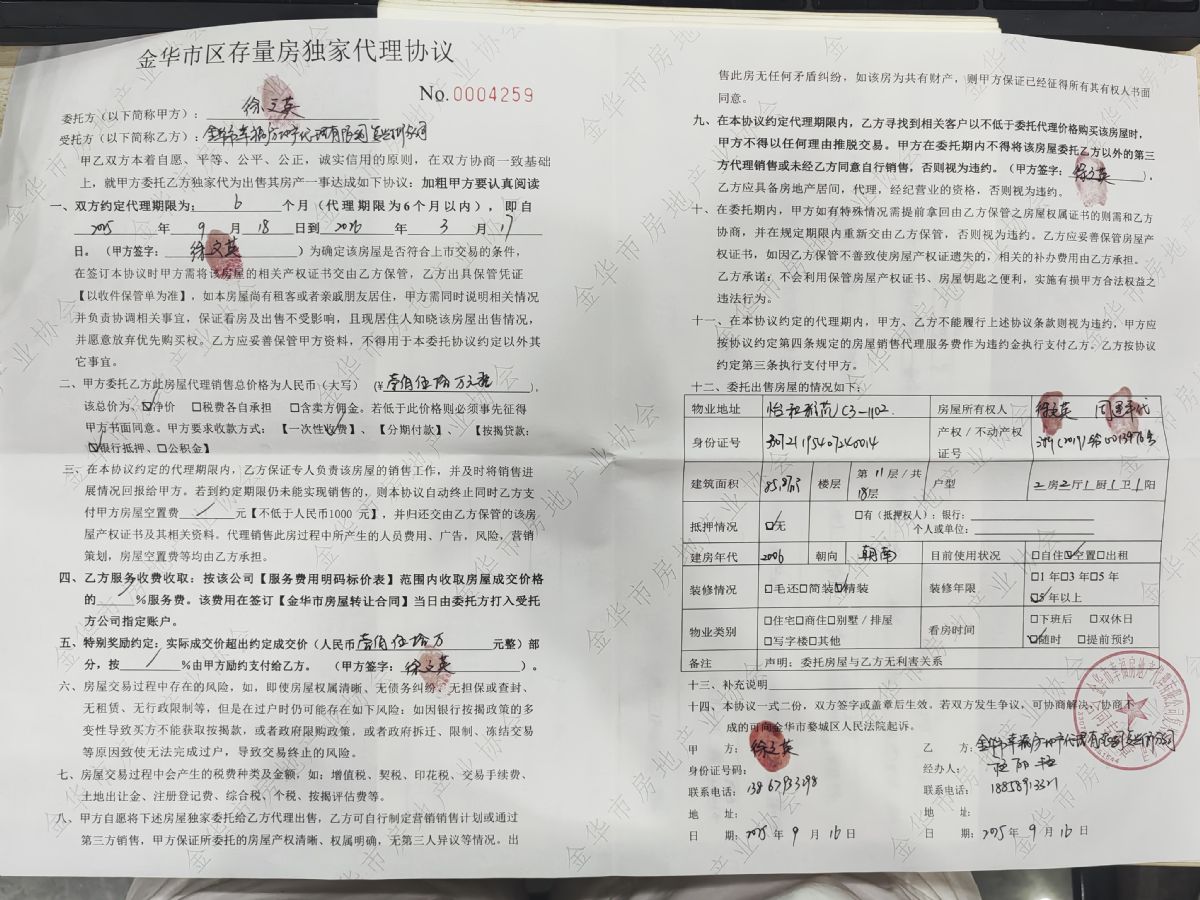 金华市区存量房独家代理协议
No.0004259
委托方（以下简称甲方）：徐文英
受托方（以下简称乙方）：金华市幸福房地产代理有限公司
甲乙双方本着自愿、平等、公平、公正，诚实信用的原则，在双方协商一致基础
上，就甲方委托乙方独家代为出售其房产一事达成如下协议：加粗甲方要认真阅读
一、双方约定代理期限为：6个月（代理期限为6个月以内），即自
2025年9月18日到2026年3月17
日。（甲方签字：徐文英）为确定该房屋是否符合上市交易的条件，
在签订本协议时甲方需将该房屋的相关产权证书交由乙方保管，乙方出具保管凭证
【以收件保管单为准】，如本房屋尚有租客或者亲戚朋友居住，甲方需同时说明相关情况
并负责协调相关事宜，保证看房及出售不受影响，且现居住人知晓该房屋出售情况，
并愿意放弃优先购买权。乙方应妥善保管甲方资料，不得用于本委托协议约定以外其
它事宜。
二、甲方委托乙方此房屋代理销售总价格为人民币（大写）（¥壹佰伍拾万元整），
该总价为、☑净价 □税费各自承担 □含卖方佣金。若低于此价格则必须事先征得
甲方书面同意。甲方要求收款方式：【一次性收费】、【分期付款】、【按揭贷款：
☑银行抵押、□公积金】
三、在本协议约定的代理期限内，乙方保证专人负责该房屋的销售工作，并及时将销售进
展情况回报给甲方。若到约定期限仍未能实现销售的，则本协议自动终止同时乙方支
付甲方房屋空置费/元【不低于人民币1000 元】，并归还交由乙方保管的该房
屋产权证书及其相关资料。代理销售此房过程中所产生的人员费用、广告，风险，营销
策划，房屋空置费等均由乙方承担。
四、乙方服务收费收取：按该公司【服务费用明码标价表】范围内收取房屋成交价格
的/%服务费。该费用在签订【金华市房屋转让合同】当日由委托方打入受托
方公司指定账户。
五、特别奖励约定：实际成交价超出约定成交价（人民币壹佰伍拾万元整）部
分，按/%由甲方励约支付给乙方。（甲方签字：徐文英）。
六、房屋交易过程中存在的风险，如，即使房屋权属清晰、无债务纠纷、无担保或查封、
无租赁、无行政限制等，但是在过户时仍可能存在如下风险：如因银行按揭政策的多
变性导致买方不能获取按揭款，或者政府限购政策，或者政府拆迁、限制、冻结交易
等原因致使无法完成过户，导致交易终止的风险。
七、房屋交易过程中会产生的税费种类及金额，如：增值税、契税、印花税、交易手续费、
土地出让金、注册登记费、综合税、个税、按揭评估费等。
八、甲方自愿将下述房屋独家委托给乙方代理出售，乙方可自行制定营销销售计划或通过
第三方销售，甲方保证所委托的房屋产权清晰、权属明确，无第三人异议等情况。出
售此房无任何矛盾纠纷，如该房为共有财产，则甲方保证已经征得所有其有权人书面
同意。
九、在本协议约定代理期限内，乙方寻找到相关客户以不低于委托代理价格购买该房屋时，
甲方不得以任何理由推脱交易。甲方在委托期内不得将该房屋委托乙方以外的第三
方代理销售或未经乙方同意自行销售，否则视为违约。（甲方签字：徐文英），
乙方应具备房地产居间，代理，经纪营业的资格，否则视为违约。
十、在委托期内，甲方如有特殊情况需提前拿回由乙方保管之房屋权属证书的则需和乙方
协商，并在规定期限内重新交由乙方保管，否则视为违约。乙方应妥善保管房屋产
权证书，如因乙方保管不善致使房屋产权证遗失的，相关的补办费用由乙方承担。
乙方承诺：不会利用保管房屋产权证书、房屋钥匙之便利，实施有损甲方合法权益之
违法行为。
十一、在本协议约定的代理期内，甲方、乙方不能履行上述协议条款则视为违约，甲方应
按协议约定第四条规定的房屋销售代理服务费作为违约金执行支付乙方。乙方按协议
约定第三条执行支付甲方。
十二、委托出售房屋的情况如下：
物业地址 怡和雅苑C3-1102. 房屋所有权人 徐文英
身份证号 产权／不动产权证号
建筑面积 85.87㎡ 楼层 第11层／共18层 户型 2房2厅1厨1卫1阳
抵押情况 ☑无 □有（抵押权人）：银行：
个人或单位：
建房年代 2006 朝向 朝南 目前使用状况 □自住☑空置□出租
装修情况 □毛还□简装☑精装 装修年限 □1年□3年□5年
☑5年以上
物业类别 □住宅□商住□别墅／排屋 □写字楼□其他 看房时间 □下班后 □双休日
☑随时 □提前预约
备注 声明：委托房屋与乙方无利害关系
十三、补充说明
十四、本协议一式二份，双方签字或盖章后生效。若双方发生争议，可协商解决，协商不
成的可向金华市婺城区人民法院起诉。
甲 方：徐文英
身份证号码：
联系电话：13867933298
地 址：
日 期：2025年9月16日
乙 方：金华市幸福房地产代理有限公司
经办人：
联系电话：18858913321
地 址：
日 期：2025年9月16日